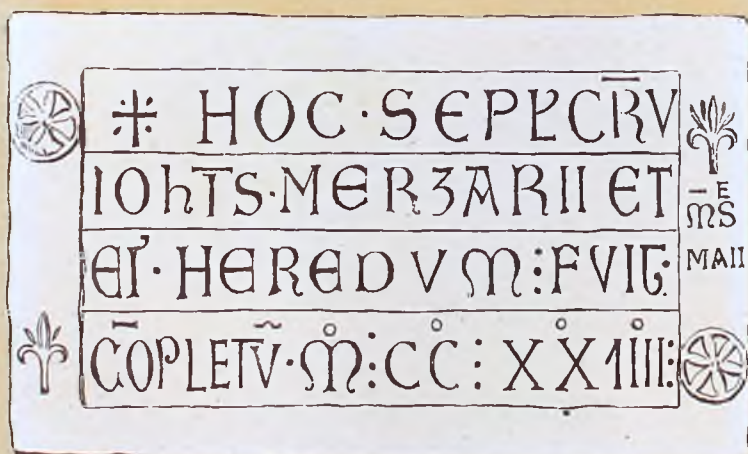 ⁜ HOC · SEPLCR̅V
IOhT̅S · MERƷARII ET
EI' · HEREDVM : FVIT :
C̅OPLETṼ · M̊ : CC̊ : XX̊IIII̊ :
M̅Sᴱ
MAII